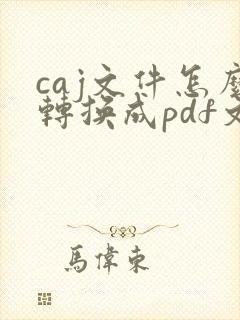 caj文件怎麼
轉換成pdf文
馬偉東